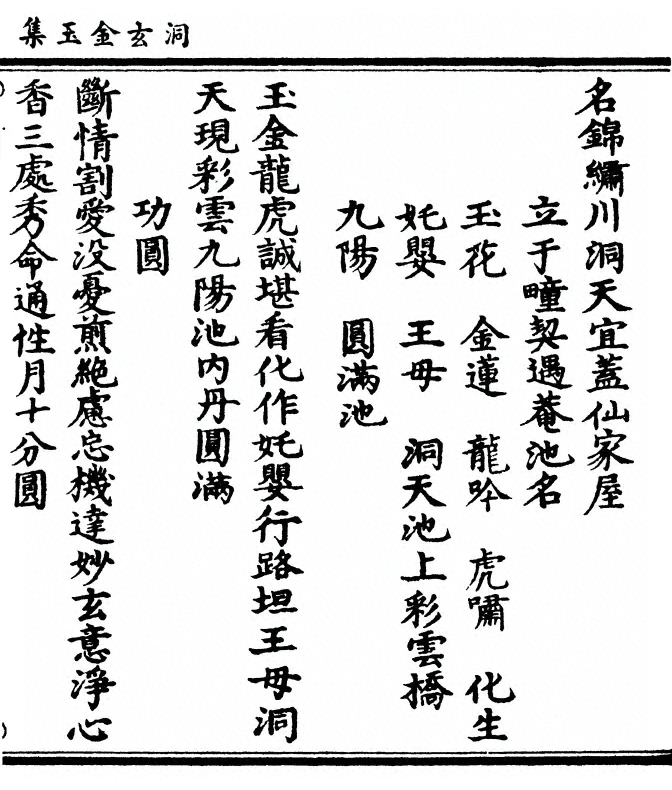 洞玄金玉集
名錦繡川洞天宜蓋仙家屋
立于疃契遇菴池名
玉花　金蓮　龍吟　虎嘯　化生
姹嬰　王母　洞天池上彩雲橋
九陽　圓滿池
玉金龍虎誠堪看化作姹嬰行路坦王母洞
天現彩雲九陽池內丹圓滿
功圓
斷情割愛没憂煎絶慮忘機達妙玄意淨心
香三處秀命通性月十分圓